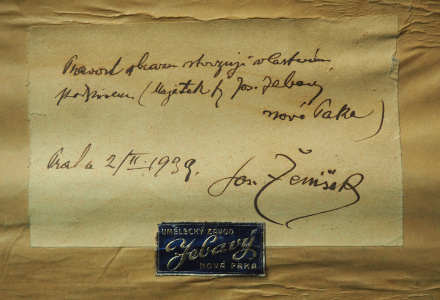 Pravost obrazu stvrzuji vlastním
podpisem (Majetek fy Jos. Jebavý
Nová Paka)
Praha 2/II. 1939. Jos. Ženíšek
UMĚLECKÝ ZÁVOD
Jebavý
NOVÁ PAKA